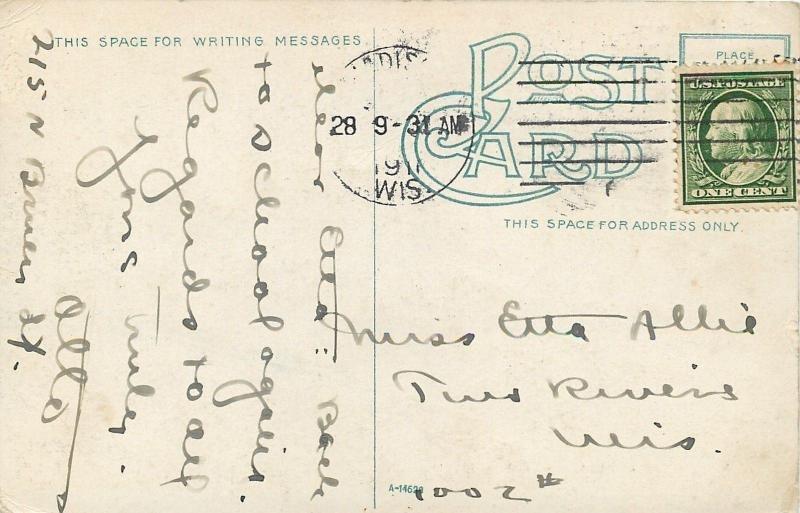 THIS SPACE FOR WRITING MESSAGES
Dear Etta:: Back
to school again.
Regards to all
Yours truly.
Otto
215 N
St.
POST
CARD
PLACE
MADIS
28 9-31 AM
191
WIS
U.S. POSTAGE
ONE CENT
THIS SPACE FOR ADDRESS ONLY.
Miss Etta Allie
Two Rivers
Wis.
A-14620
1002 #